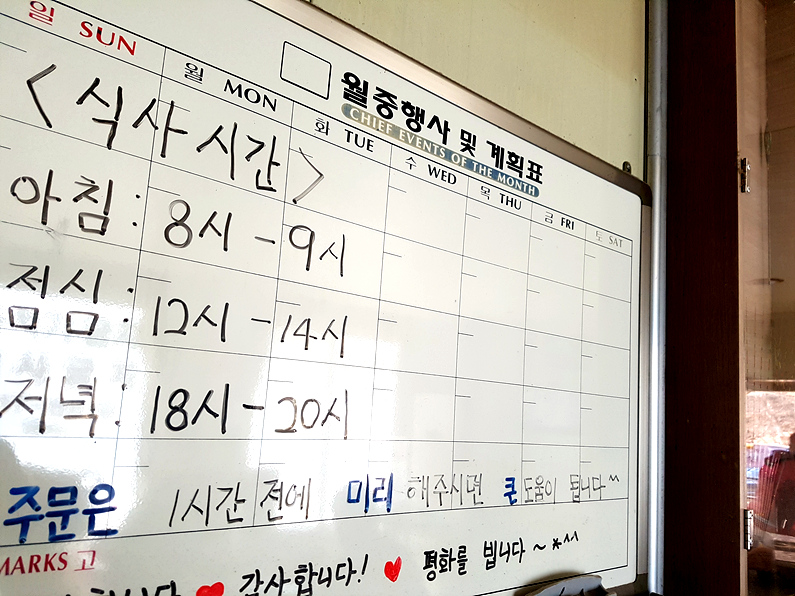 월중행사 및 계획표
CHIEF EVENTS OF THE MONTH
일 SUN 월 MON 화 TUE 수 WED 목 THU 금 FRI 토 SAT
<식사 시간>
아침: 8시 - 9시
점심: 12시 - 14시
저녁: 18시 - 20시
주문은 1시간 전에 미리 해주시면 큰 도움이 됩니다^^
MARKS 고
감사합니다! 평화를 빕니다~*^^